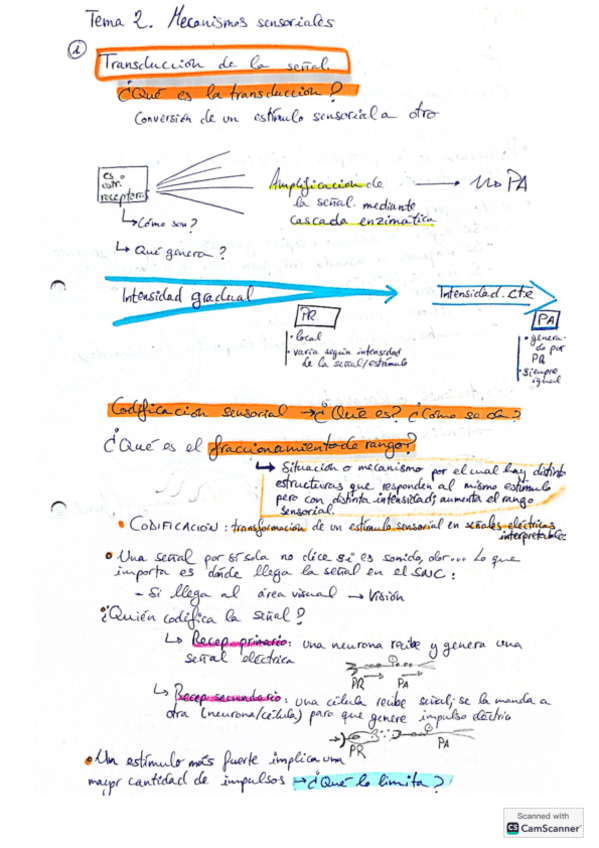 Tema 2. Mecanismos sensoriales
1
Transducción de la señal.
¿Qué es la transducción?
Conversión de un estímulo sensorial a otro
es.
estr.
receptoras
Amplificación de
la señal mediante
cascada enzimática
PA
↳ ¿Cómo son?
↳ Qué genera?
Intensidad gradual
Intensidad cte
PR
• local
• varia según intensidad
de la señal/estímulo
PA
• genera-
do por
PR
• siempre
igual
Codificación sensorial → ¿Qué es? ¿Cómo se da?
¿Qué es el fraccionamiento de rango?
↳ Situación o mecanismo por el cual hay distintas
estructuras que responden al mismo estímulo
pero con distinta intensidad; aumenta el rango
sensorial.
• CODIFICACIÓN: transformación de un estímulo sensorial en señales eléctricas
interpretables
• Una señal por sí sola no dice si es sonido, olor... Lo que
importa es dónde llega la señal en el SNC:
- Si llega al área visual → Visión
¿Quién codifica la señal?
↳ Recep. primario: una neurona recibe y genera una
señal eléctrica
PR PA
↳ Recep secundario: una célula recibe señal; se la manda a
otra (neurona/célula) para que genere impulso eléctrico
PR PA
• Un estímulo más fuerte implica una
mayor cantidad de impulsos → ¿Qué lo limita?
Scanned with
CS CamScanner